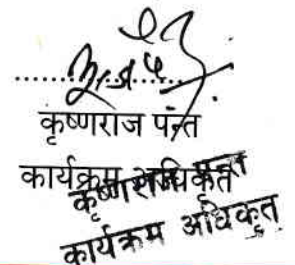 कृष्णराज पन्त
कार्यक्रम अधिकृत
कृष्णराज पन्त
कार्यक्रम अधिकृत